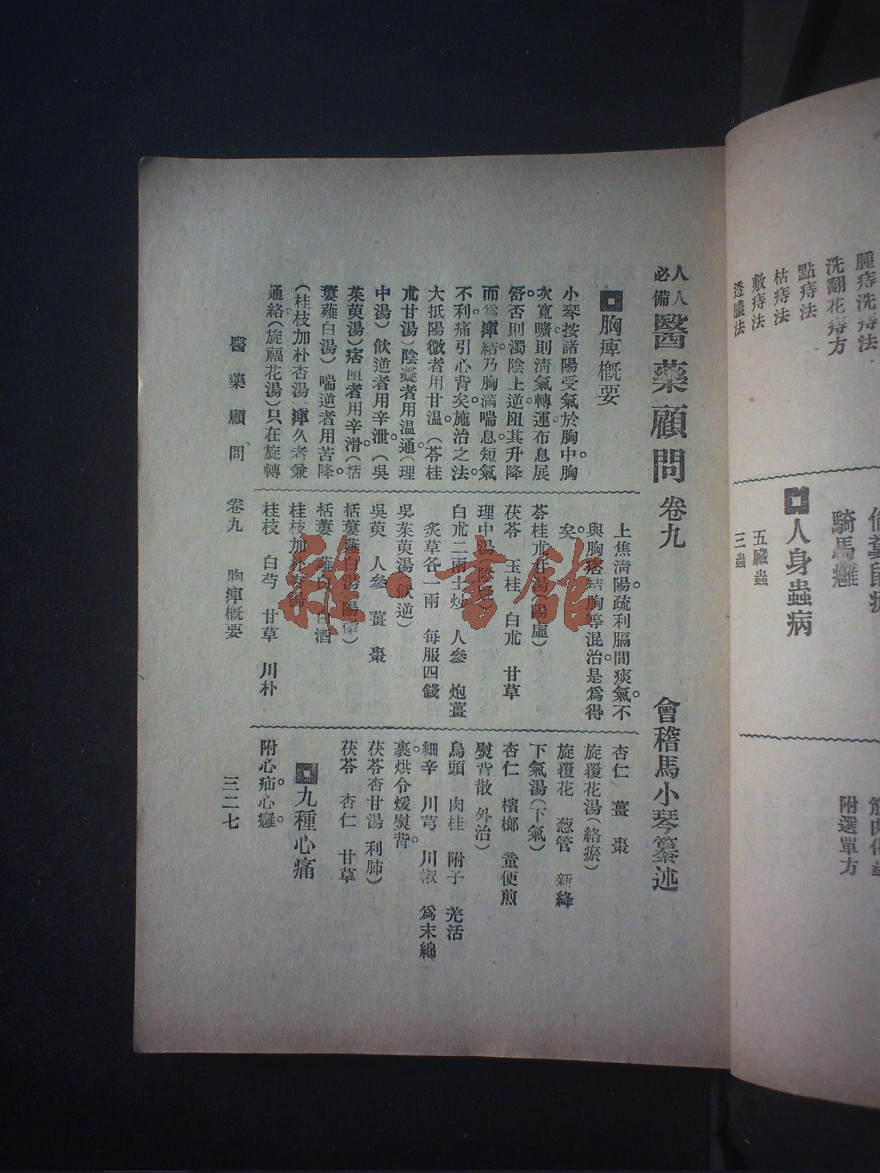 人人必備醫藥顧問 卷九
會稽馬小琴纂述
胸痺概要
小琴按諸陽受氣於胸中胸
次寬曠則清氣轉運布息展
舒。否則濁陰上逆阻其升降
而為痺結乃胸滿喘息短氣
不利痛引心背矣。施治之法。
大抵陽微者用甘溫。(苓桂
朮甘湯)陰凝者用溫通(理
中湯)飲逆者用辛泄。(吳
茱萸湯)痞 者用辛滑。(栝
蔞薤白湯)喘逆者用苦降。
(桂枝加朴杏湯)痺久者兼
通絡(旋 花湯)只在旋轉
上焦清陽。疏利膈間痰氣。不
與胸痞結胸等混治。是為得
矣。
苓桂朮甘湯(陽虛)
茯苓 玉桂 白朮 甘草
理中湯(陰 )
白朮二兩土炒 人參 炮薑
炙草各一兩 每服四錢
吳茱萸湯(飲逆)
吳萸 人參 薑 棗
栝蔞薤白湯(陽 )
栝蔞 薤白 白酒
桂枝加朴杏湯
桂枝 白芍 甘草 川朴
杏仁 薑 棗
旋覆花湯(絡瘀)
旋覆花 葱管 新絳
下氣湯(下氣)
杏仁 檳榔 童便煎
熨背散(外治)
烏頭 肉桂 附子 羌活
細辛 川芎 川淑 為末綿
裹。烘令煖熨背。
茯苓杏甘湯(利肺)
茯苓 杏仁 甘草
九種心痛
附心疝。心癰。
醫藥顧問 卷九 胸痺概要 三二七
腫痔洗法
洗翻花痔方
點痔法
枯痔法
敷痔法
透膿法
騎馬癰
人身蟲病
五臟蟲
三蟲
附選單方
雜·書館